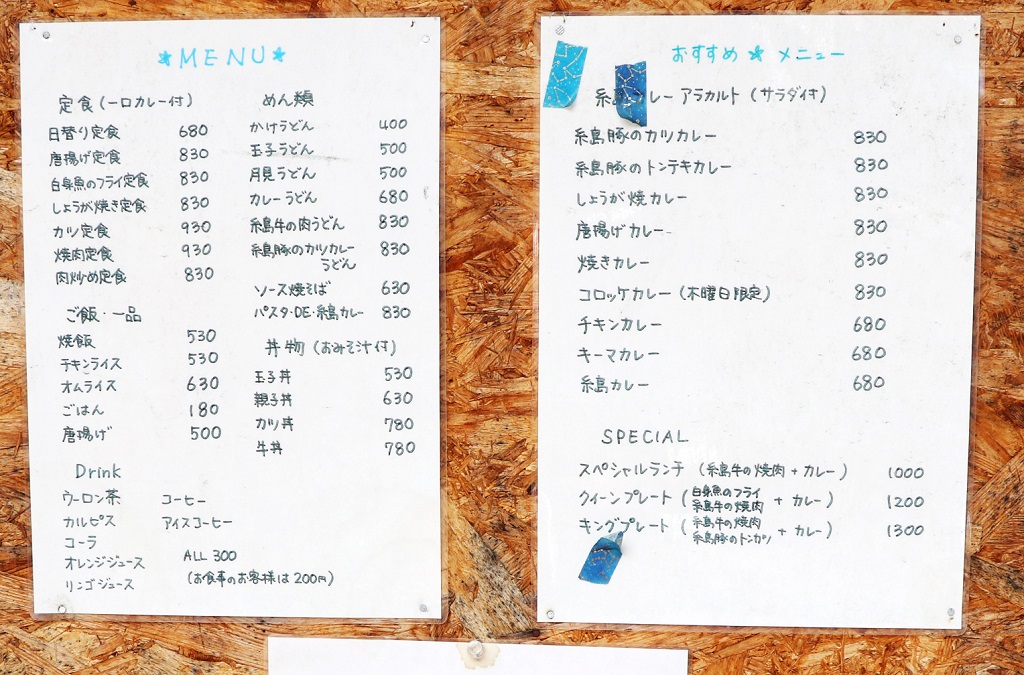 *MENU*
定食(一口カレー付)
日替り定食 680
唐揚げ定食 830
白身魚のフライ定食 830
しょうが焼き定食 830
カツ定食 930
焼肉定食 930
肉炒め定食 830
ご飯・一品
焼飯 530
チキンライス 530
オムライス 630
ごはん 180
唐揚げ 500
めん類
かけうどん 400
玉子うどん 500
月見うどん 500
カレーうどん 680
糸島牛の肉うどん 830
糸島豚のカツカレー 830
うどん
ソース焼そば 630
パスタ・DE・糸島カレー 830
丼物(おみそ汁付)
玉子丼 530
親子丼 630
カツ丼 780
牛丼 780
Drink
ウーロン茶 コーヒー
カルピス アイスコーヒー
コーラ
オレンジジュース ALL 300
リンゴジュース (お食事のお客様は200円)
おすすめ*メニュー
糸カレー アラカルト(サラダ付)
糸島豚のカツカレー 830
糸島豚のトンテキカレー 830
しょうが焼カレー 830
唐揚げカレー 830
焼きカレー 830
コロッケカレー(木曜日限定) 830
チキンカレー 680
キーマカレー 680
糸島カレー 680
SPECIAL
スペシャルランチ (糸島牛の焼肉+カレー) 1000
クィーンプレート (白身魚のフライ 糸島牛の焼肉 + カレー) 1200
キングプレート (糸島牛の焼肉 糸島豚のトンカツ + カレー) 1300